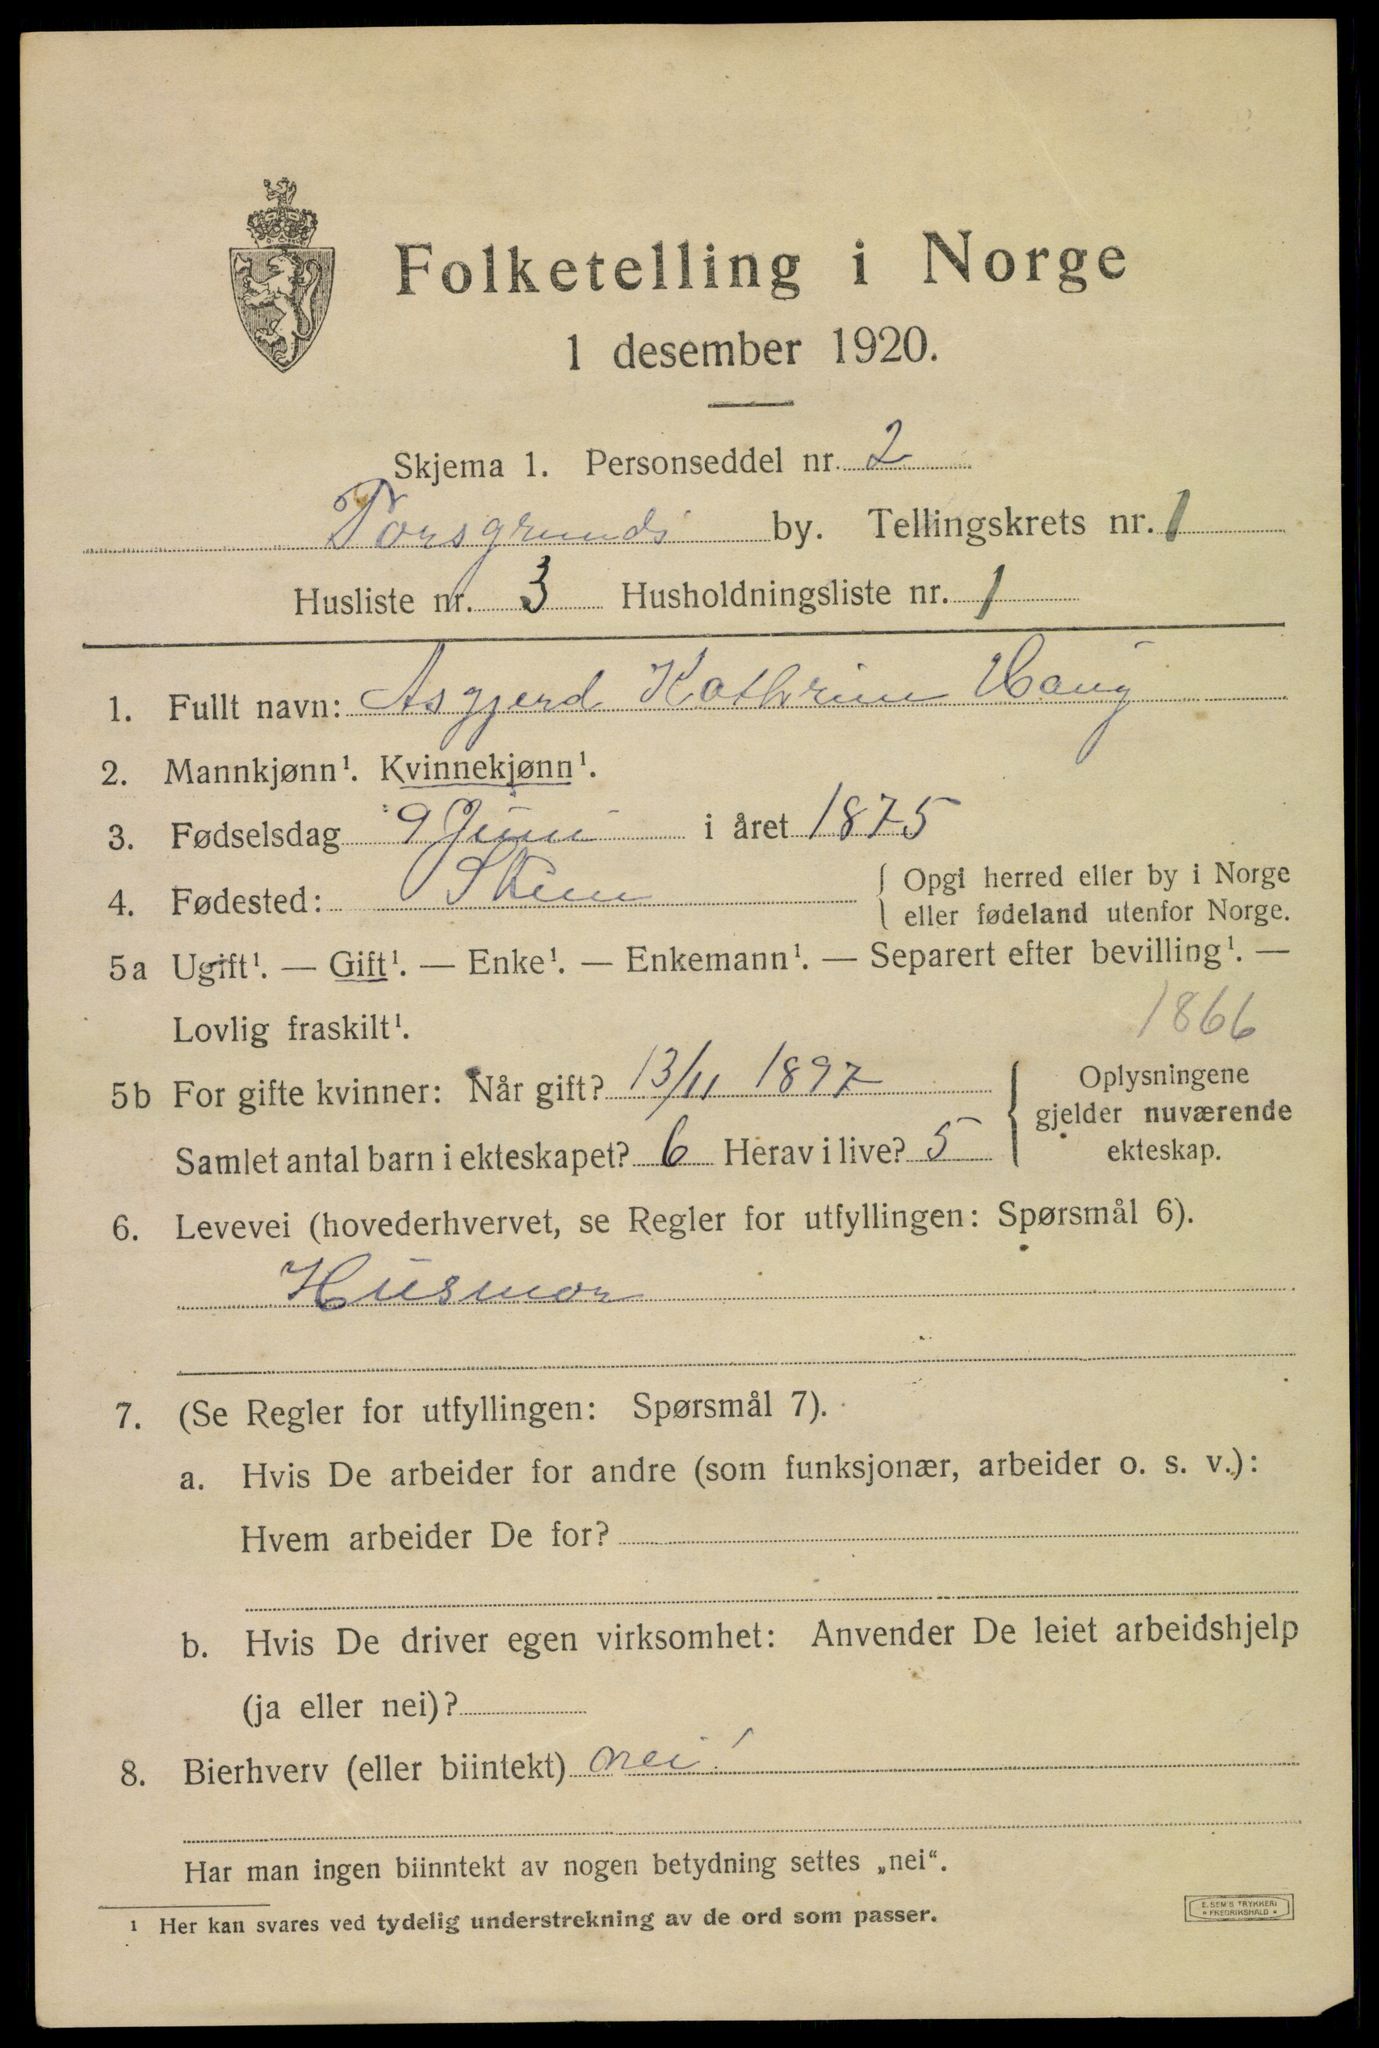 Folketelling i Norge
1 desember 1920.
Skjema 1. Personseddel nr. 2
Porsgrunds by. Tellingskrets nr. 1
Husliste nr. 3 Husholdningsliste nr. 1
1. Fullt navn: Asgjerd Kathrine Haug
2. Mannkjønn¹. Kvinnekjønn¹.
3. Fødselsdag 9 Juni i året 1875
4. Fødested: Skien { Opgi herred eller by i Norge
eller fødeland utenfor Norge.
5a Ugift¹. — Gift¹. — Enke¹. — Enkemann¹. — Separert efter bevilling¹. —
Lovlig fraskilt¹. 1866
5b For gifte kvinner: Når gift? 13/11 1897 { Oplysningene
gjelder nuværende
Samlet antal barn i ekteskapet? 6 Herav i live? 5 ekteskap.
6. Levevei (hovederhvervet, se Regler for utfyllingen: Spørsmål 6).
Husmor
7. (Se Regler for utfyllingen: Spørsmål 7).
a. Hvis De arbeider for andre (som funksjonær, arbeider o. s. v.):
Hvem arbeider De for?
b. Hvis De driver egen virksomhet: Anvender De leiet arbeidshjelp
(ja eller nei)?
8. Bierhverv (eller biintekt) nei!
Har man ingen biinntekt av nogen betydning settes „nei“.
¹ Her kan svares ved tydelig understrekning av de ord som passer.
E. SEM'S TRYKKERI
• FREDRIKSHALD •